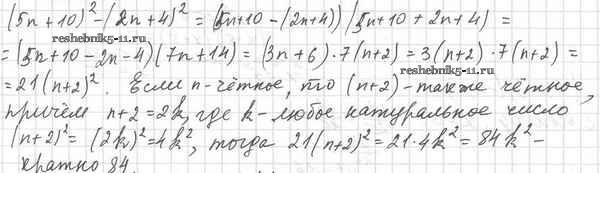 (5n+10)²-(2n+4)² = (5n+10-(2n+4))(5n+10+2n+4) =
reshebnik5-11.ru
= (5n+10-2n-4)(7n+14) = (3n+6)·7(n+2) = 3(n+2)·7(n+2) =
reshebnik5-11.ru
= 21(n+2)². Если n-чётное, то (n+2)-также чётное,
причём n+2=2k, где k-любое натуральное число
(n+2)²= (2k)²=4k², тогда 21(n+2)²=21·4k²=84k²-
кратно 84.